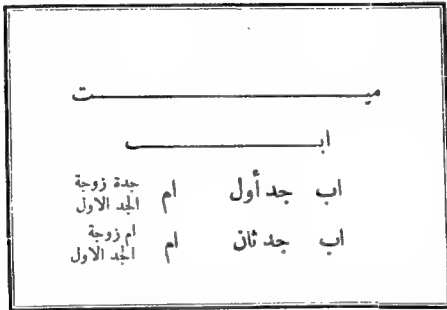 ميت
اب
اب جد أول ام جدة زوجة الجد الاول
اب جد ثان ام ام زوجة الجد الاول